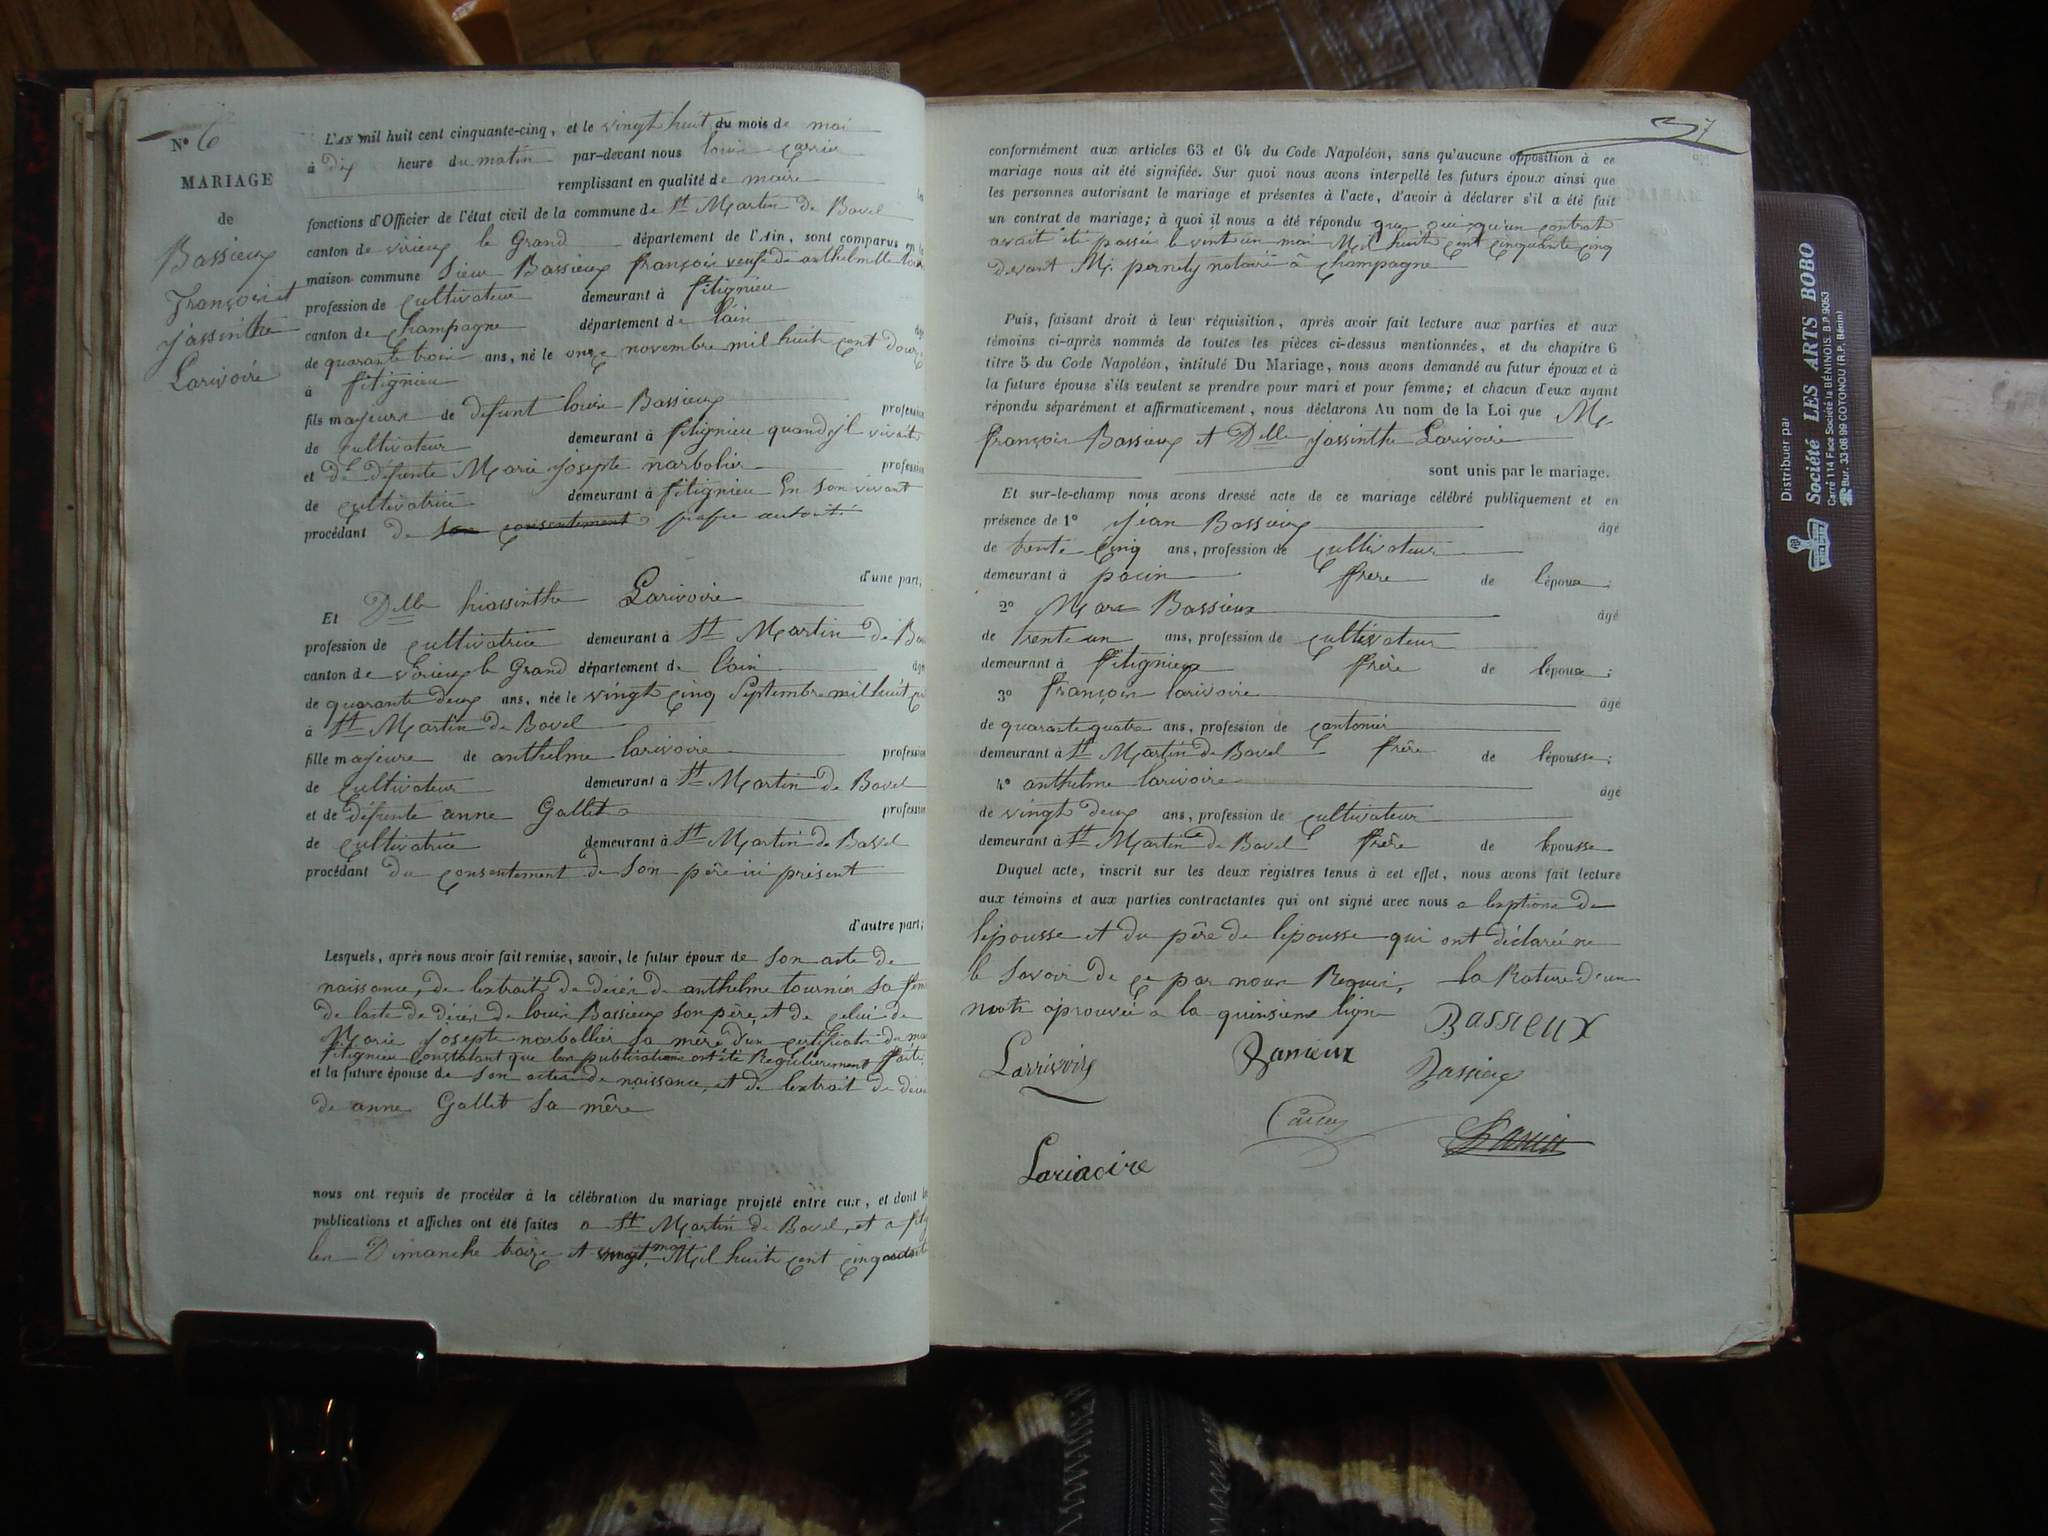 N° 6
MARIAGE
de
Bassieux
François et
jassinthe
Larivoire
L'AN mil huit cent cinquante-cinq, et le vingt huit du mois de mai
à dix heure du matin par-devant nous louis carrier
remplissant en qualité de maire les
fonctions d'Officier de l'état civil de la commune de St Martin de Bavel
canton de virieux le Grand département de l'Ain, sont comparus en la
maison commune Sieur Bassieux françois veuf de anthelmette
profession de cultivateur demeurant à fitignieu
canton de champagne département de lain âgé
de quarante trois ans, né le onze novembre mil huit cent douze
à fitignieu
fils majeure de défunt louis Bassieux profession
de cultivateur demeurant à fitignieu quand jl vivait
et de défunte Marie josepte narbolier profession
de cultivatrice demeurant à fitignieu En son vivant
procédant de son consentement propre autorité
d'une part;
Et Delle hiassinthe Larivoire
profession de cultivatrice demeurant à St Martin de Ba
canton de virieux le Grand département de lain âgé
de quarante deux ans, née le vingt cinq Septembre mil huit
à St Martin de Bavel
fille majeure de anthelme larivoire profession
de cultivateur demeurant à St Martin de Bavel
et de défunte anne Gallet profession
de cultivatrice demeurant à St Martin de Bavel
procédant du consentement de Son père ici présent
d'autre part;
Lesquels, après nous avoir fait remise, savoir, le futur époux de Son acte de
naissance, de lextrait de décés de anthelme tournier sa fem
de lacte de décés de louis Bassieux son père, et de celui de
Marie josepte narbollier sa mère d'un certificat du
fitignieu constatant que les publications ont été Regulierement faite
et la future épouse de son acte de naissance, et de lextrait de déce
de anne Gallet sa mère
nous ont requis de procéder à la célébration du mariage projeté entre eux, et dont les
publications et affiches ont été faites a St Martin de Bavel, et a fitig
les Dimanche traize et vingt mai Mil huit cent cinquante
7
conformément aux articles 63 et 64 du Code Napoléon, sans qu'aucune opposition à ce
mariage nous ait été signifiée. Sur quoi nous avons interpellé les futurs époux ainsi que
les personnes autorisant le mariage et présentes à l'acte, d'avoir à déclarer s'il a été fait
un contrat de mariage; à quoi il nous a été répondu que oui qu'un contrat
avait été passée le vint un mai Mil huit cent cinquante cinq
devant M. pernety notaire à champagne
Puis, faisant droit à leur réquisition, après avoir fait lecture aux parties et aux
témoins ci-après nommés de toutes les pièces ci-dessus mentionnées, et du chapitre 6
titre 5 du Code Napoléon, intitulé Du Mariage, nous avons demandé au futur époux et à
la future épouse s'ils veulent se prendre pour mari et pour femme; et chacun d'eux ayant
répondu séparément et affirmaticement, nous déclarons Au nom de la Loi que Mr
françois Bassieux et Delle jassinthe Larivoire
sont unis par le mariage.
Et sur-le-champ nous avons dressé acte de ce mariage célébré publiquement et en
présence de 1° jean Bassieux âgé
de trente cinq ans, profession de cultivateur
demeurant à frere de lépoux;
2° Marc Bassieux âgé
de trente un ans, profession de cultivateur
demeurant à fitignieux frère de lépoux;
3° françois larivoire âgé
de quarante quatre ans, profession de cantonier
demeurant à St Martin de Bavel frère de lépousse;
4° anthelme larivoire âgé
de vingt deux ans, profession de cultivateur
demeurant à St Martin de Bavel frère de lepousse
Duquel acte, inscrit sur les deux registres tenus à cet effet, nous avons fait lecture
aux témoins et aux parties contractantes qui ont signé avec nous a lexptions de
lépousse et du père de lépousse qui ont déclarée ne
le Savoir de ce par nous Requis, la Rature d'un
mots aprouvée a la quinsieme ligne
BassieuX
Larrivoire
Bassieux
Bassieux
Larivoire
Distribuer par
Société LES ARTS BOBO
Carré 114 Face Société la BÉNINOIS. B.P. 9053
Bur. 33-06 99 COTONOU (R.P. Bénin)